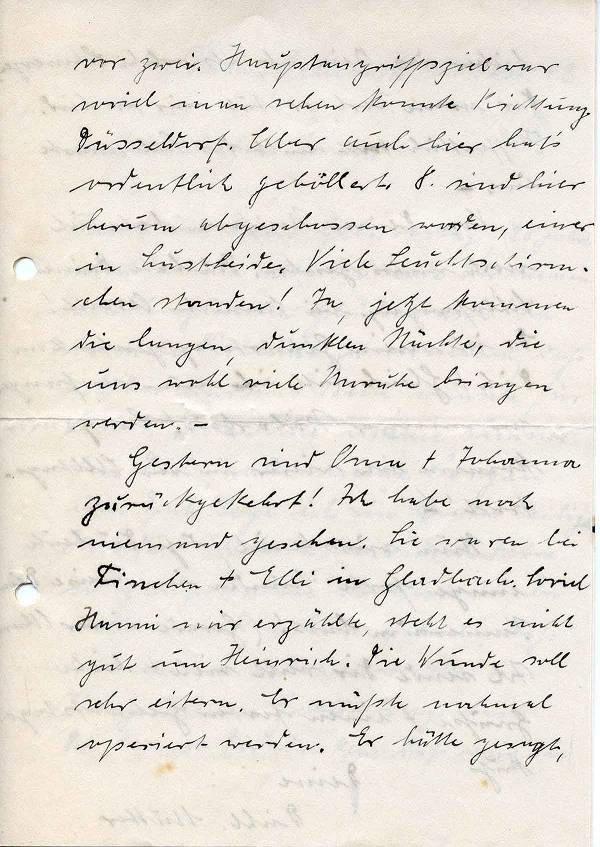 vor zwei. Hauptangriffsziel war
soviel man sehen konnte Richtung
Düsseldorf. Aber auch hier hat's
ordentlich geböllert. 8. sind hier
herum abgeschossen worden, einer
in Lustheide. Viele Leuchtschirm-
chen standen! Ja, jetzt kommen
die langen, dunklen Nächte, die
uns wohl viele Unruhe bringen
werden. –
Gestern sind Oma + Johanna
zurückgekehrt! Ich habe noch
niemand gesehen. Sie waren bei
Finchen + Elli in Gladbach. Soviel
Hanni mir erzählte, steht es nicht
gut um Heinrich. Die Wunde soll
sehr eitern. Er müßte nochmal
operiert werden. Er hätte gesagt,